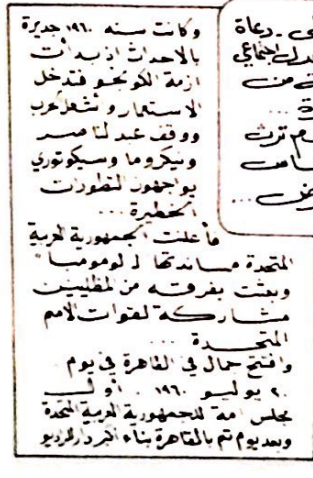 وكانت سنه ١٩٦٠ جديرة
بالاحداث اذ بدأت
ازمة الكونجو فتدخل
الاستعمار ونشعل الحرب
ووقف عبد لناصر
ونيكروما وسيكوتوري
يواجهون التطورات
الخطيرة ...
فأعلنت الجمهورية العربية
المتحدة مساندتها لـ لومومبا"
وبعثت بفرقه من المظليين
مشاركة لقوات الامم
المتحدة ...
وافتتح جمال في القاهرة في يوم
٢٠ يوليو ١٩٦٠ .. أول
مجلس امة للجمهورية العربية المتحدة
وبعد يوم تم بالقاهرة بناء اكبر دار للراديو
دعاة
من
ام ترث